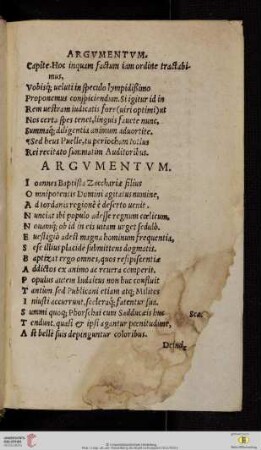 ARGVMENTVM.
Capite. Hoc inquam factum iam ordine tractabi-
mus,
Vobisq; ueluti in speculo lympidißimo
Proponemus conspiciendum. Si igitur id in
Rem uestram iudicatis fore (uiri optimi) ut
Nos certa spes tenet, linguis fauete nunc,
Summaq; diligentia animum aduortite.
Sed heus Puelle, tu periocham totius
Rei recitato summatim Auditoribus.
ARGVMENTVM.
I oannes Baptista Zacchariæ filius
O mnipotentis Domini agitatus numine,
A d Iordanis regionē è deserto uenit.
N unciat ibi populo adesse regnum cœlicum,
N ouamq; ob id in eis uitam urget sedulò.
E uestigiò adest magna hominum frequentia,
S ese illius placide submittens dogmatis.
B aptizat ergo omnes, quos resipiscentiæ
A ddictos ex animo ac reuera comperit.
P opulus autem Iudaicus non huc confluit
T antum, sed Publicani etiam atq; Milites
I niusti accurrunt, sceleraq; fatentur sua.
S ummi quoq; Pharisæi cum Sadducæis huc
T endunt, quasi & ipsi agantur pœnitudine,
A st belle suis depinguntur coloribus.
Sca.
Deinde